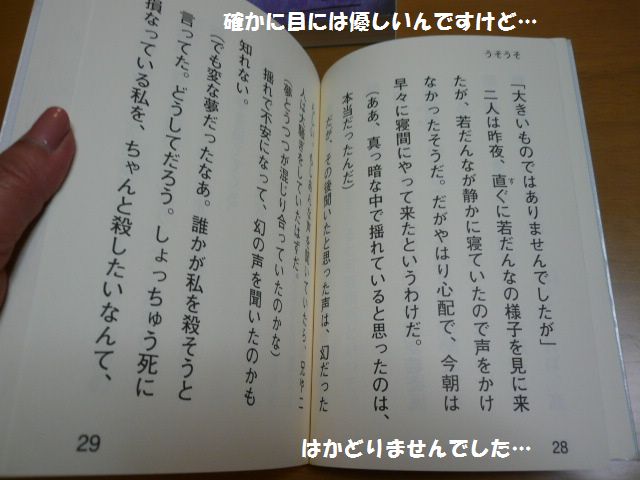 確かに目には優しいんですけど…
うそうそ
「大きいものではありませんでしたが」
二人は昨夜、直ぐに若だんなの様子を見に来
す
たが、若だんなが静かに寝ていたので声をかけ
なかったそうだ。だがやはり心配で、今朝は
早々に寝間にやって来たというわけだ。
(ああ、真っ暗な中で揺れていると思ったのは、
本当だったんだ)
だが、その後聞いたと思った声は、幻だった
28
人は大騒ぎをしていたはずだ。
(夢とうつつが混じり合っていたのかな)
揺れで不安になって、幻の声を聞いたのかも
知れない。
(でも変な夢だったなあ。誰かが私を殺そうと
言ってた。どうしてだろう。しょっちゅう死に
損なっている私を、ちゃんと殺したいなんて、
29
はかどりませんでした…